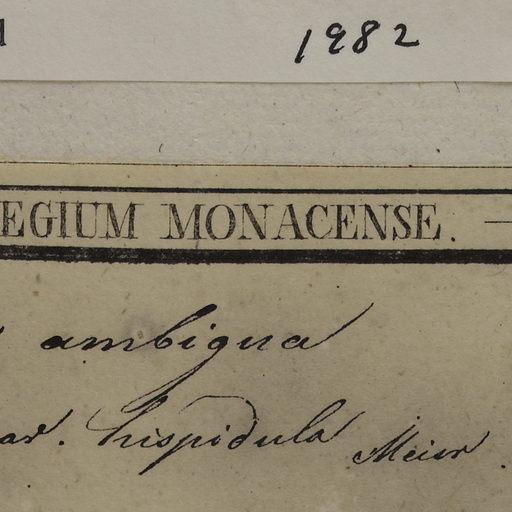 1982
EGIUM MONACENSE.
ambigua
ar. hispidula Meier.